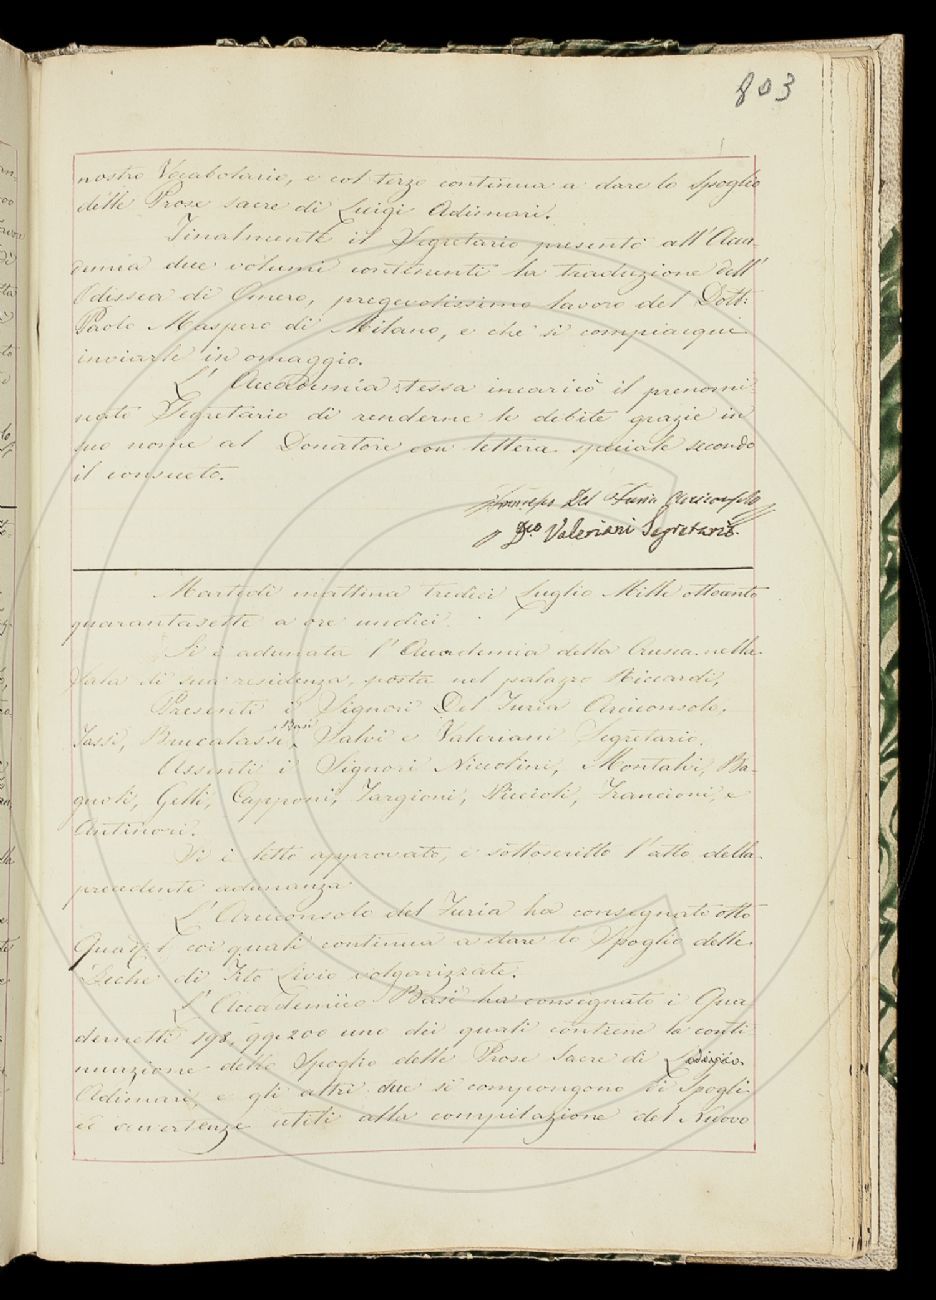 803
nostro Vocabolario, e col terzo continua a dare lo Spoglio
delle Prose sacre di Luigi Adimari.
Finalmente il Segretario presentò all'Acca-
demia due volumi contenenti la traduzione dell'
Odissea di Omero, pregevolissimo lavoro del Dott:
Paolo Maspero di Milano, e che si compiacque
inviarle in omaggio.
L'Accademia stessa incaricò il prenomi-
nato Segretario di renderne le debite grazie in
suo nome al Donatore con lettera speciale secondo
il consueto.
Francesco Del Furia Arciconsolo
Valeriani Segretario.
Martedì mattina tredici Luglio Mille ottocento
quarantasette a ore undici.
Si è adunata l'Accademia della Crusca nella
Sala di sua residenza, posta nel palazzo Riccardi,
Presenti i Signori Del Furia Arciconsolo,
Tassi, Brucalassi, Basi Salvi e Valeriani Segretario.
Assenti i Signori Niccolini, Montalvi, Ba-
gnoli, Gelli, Capponi, Targioni, Piccioli, Francioni, e
Antinori.
Si è letto approvato, e sottoscritto l'atto della
precedente adunanza.
L'Arciconsolo del Furia ha consegnato otto
coi quali continua a dare lo Spoglio delle
Deche di Tito Livio volgarizzate.
L'Accademico Basi ha consegnato i Qua-
dernetti 198, 99, 200 uno dei quali contiene la conti-
nuazione dello Spoglio delle Prose Sacre di
Adimari, e gli altri due si compongono di Spogli
ed avvertenze utili alla compilazione del Nuovo